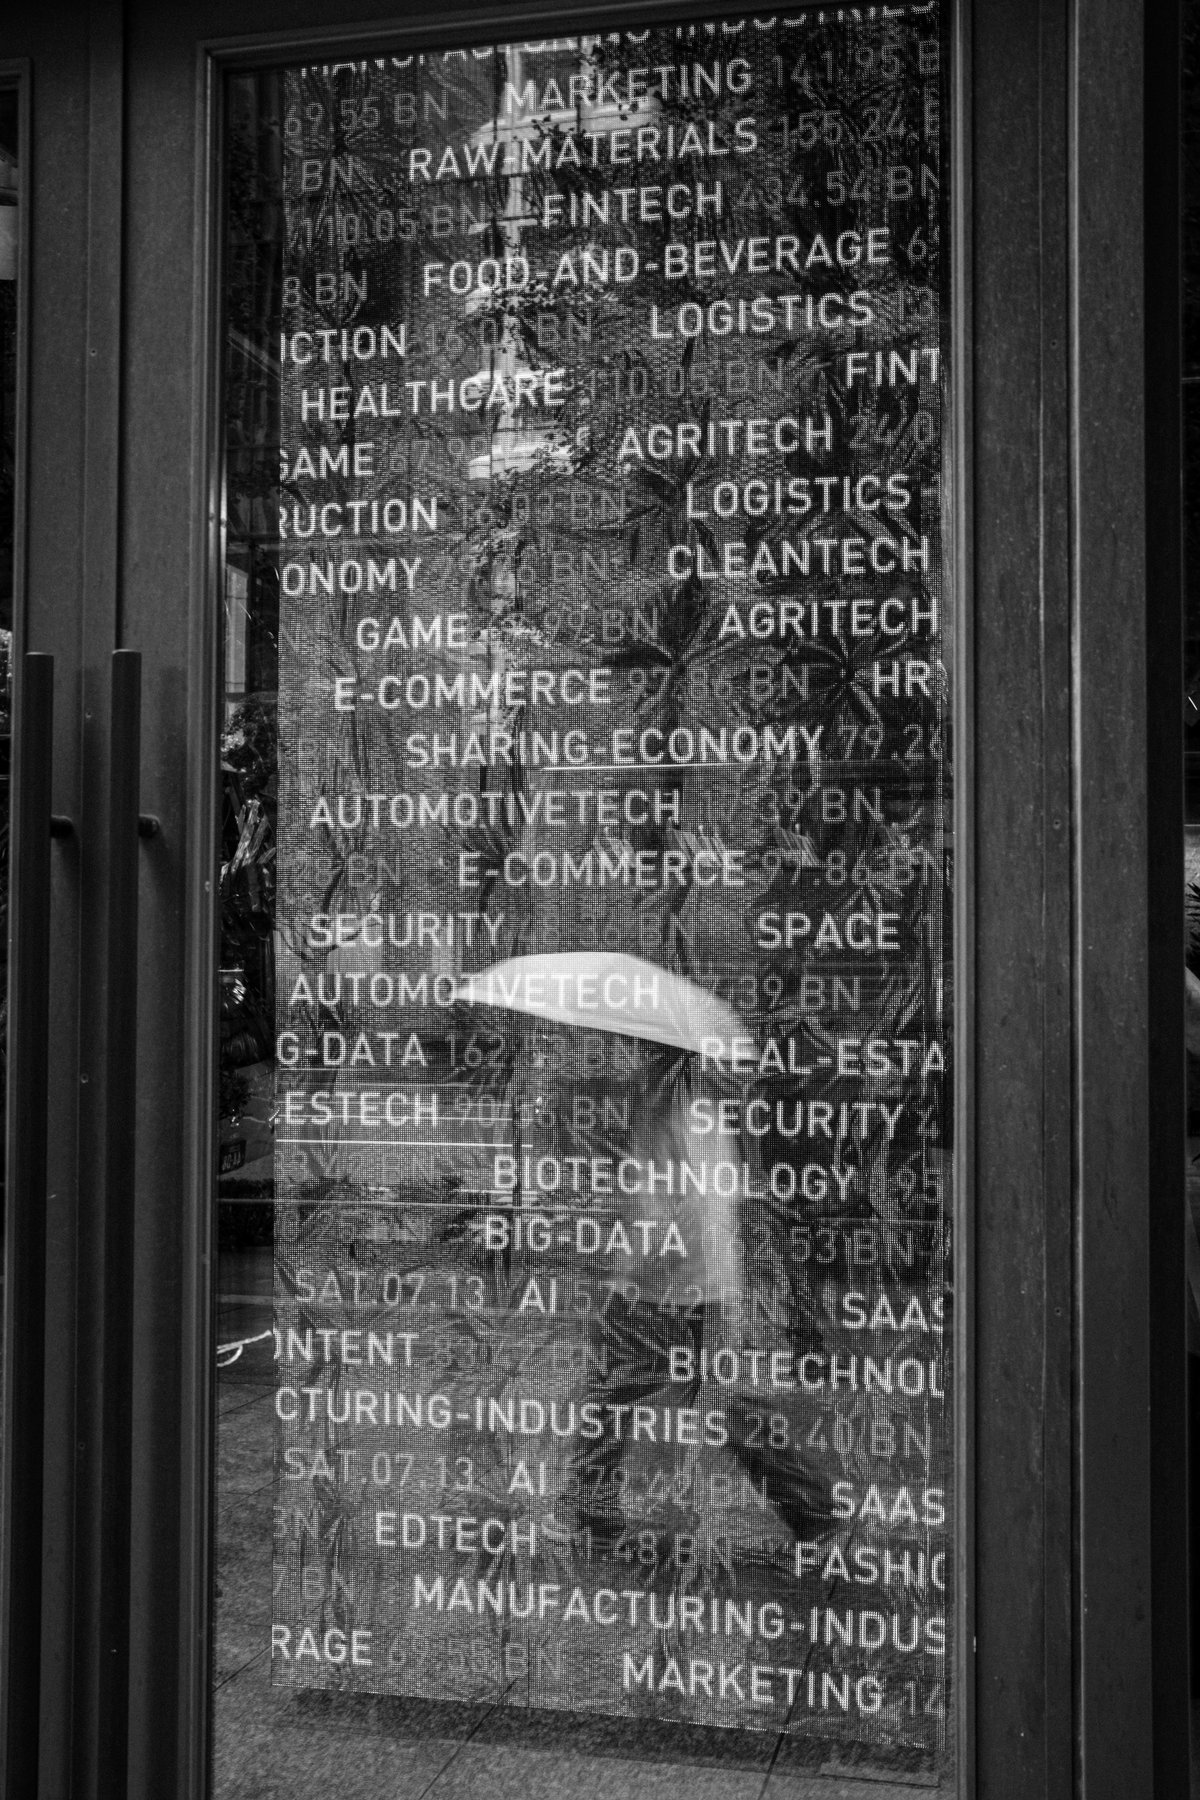 MANUFACTURING-INDUSTRIES
69.55 BN MARKETING 141.95 B
BN RAW-MATERIALS 155.24 B
110.05 BN FINTECH 434.54 BN
8 BN FOOD-AND-BEVERAGE 69
CTION BN LOGISTICS
HEALTHCARE 110.05 BN FINT
GAME 67.99 AGRITECH
RUCTION BN LOGISTICS
ONOMY BN CLEANTECH
GAME 99 BN AGRITECH
E-COMMERCE 97.86 BN HR
SHARING-ECONOMY 79.26
AUTOMOTIVETECH 39 BN
BN E-COMMERCE 97.86 BN
SECURITY BN SPACE
AUTOMOTIVETECH 39 BN
G-DATA BN REAL-ESTA
ESTECH BN SECURITY
BIOTECHNOLOGY
BIG-DATA 53 BN
SAT.07.13 AI 579.42 BN SAAS
ONTENT BIOTECHNOL
CTURING-INDUSTRIES 28.40 BN
SAT.07.13 AI 579.42 BN SAAS
BN EDTECH 48 BN FASHIO
BN MANUFACTURING-INDUS
RAGE 69.55 BN MARKETING 14